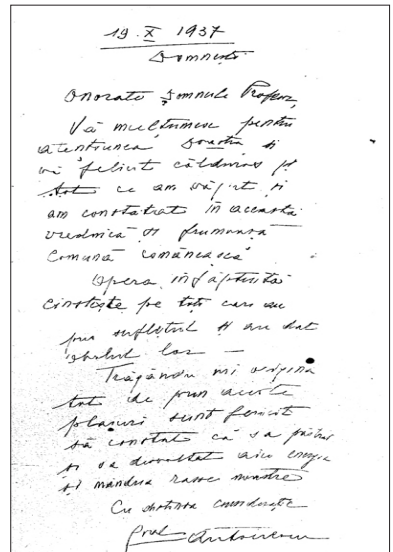 19.X 1937
Domnești
Onorate Domnule Profesor,
Vă mulțumesc pentru
atențiunea Doastră și
vă felicit călduros pt
tot ce am văzut și
am constatat în această
vrednică și frumoasă
Comună românească
Opera înfăptuită
cinstește pe toți cari au
pus sufletul și au dat
obolul lor —
Trăgându mi origina
tot de prin aceste
plaiuri sunt fericit
să constat că s'a păstrat
și s'a desvoltat aici energia
și mândria rasei noastre
Cu distinsa considerație
Gral Antonescu